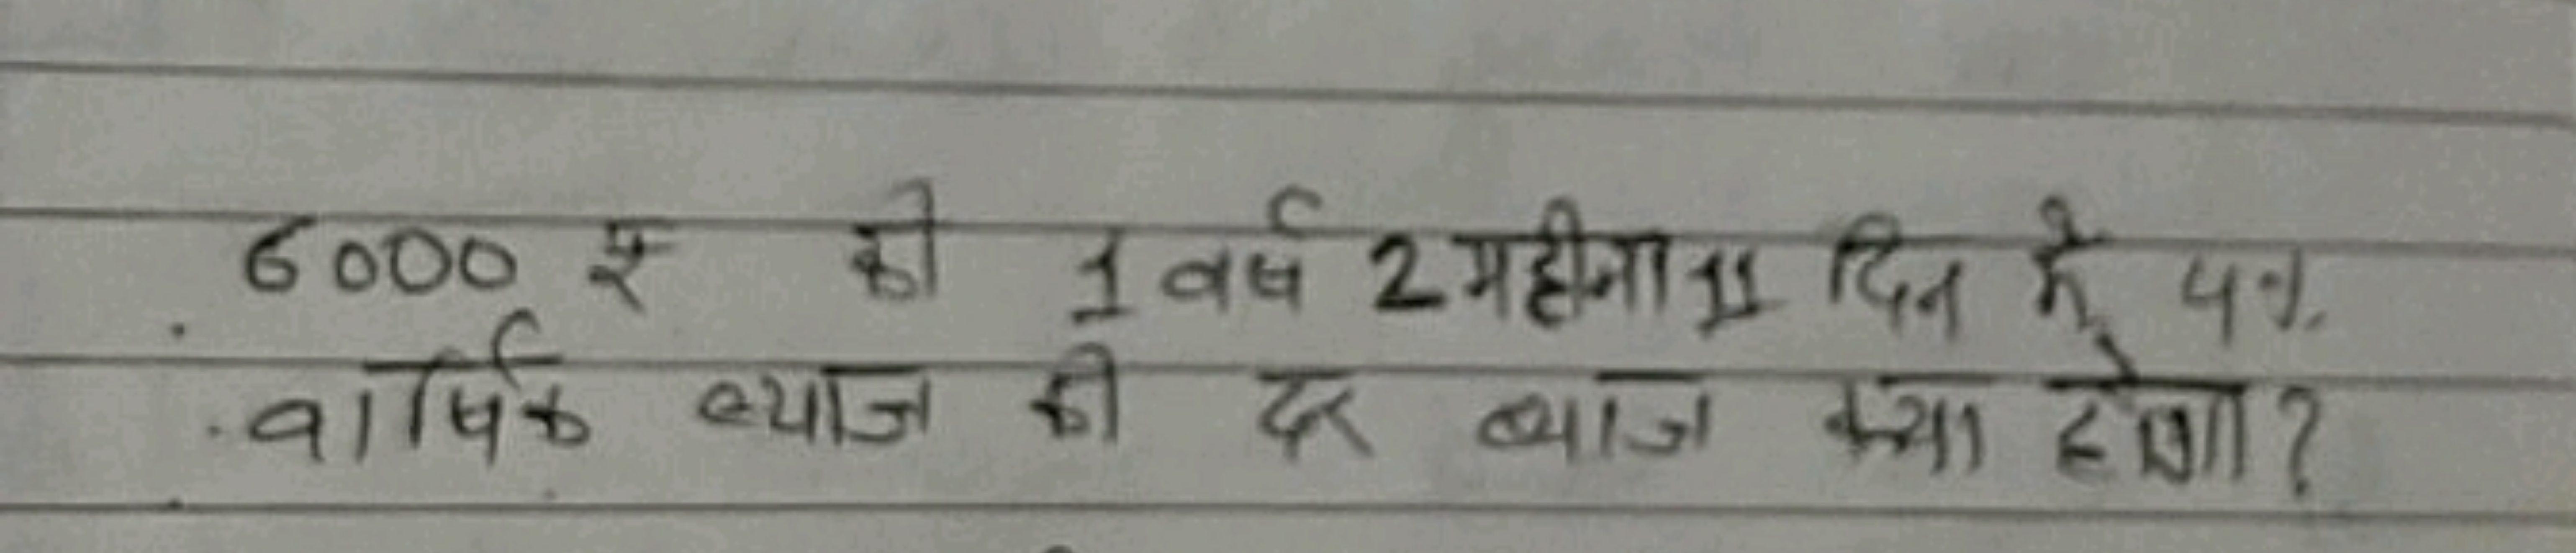 6000 रु की 1 वर्ष 2 महीना 11 दिन में 4%
वार्षिक ब्याज की दर ब्याज क्या होगा?